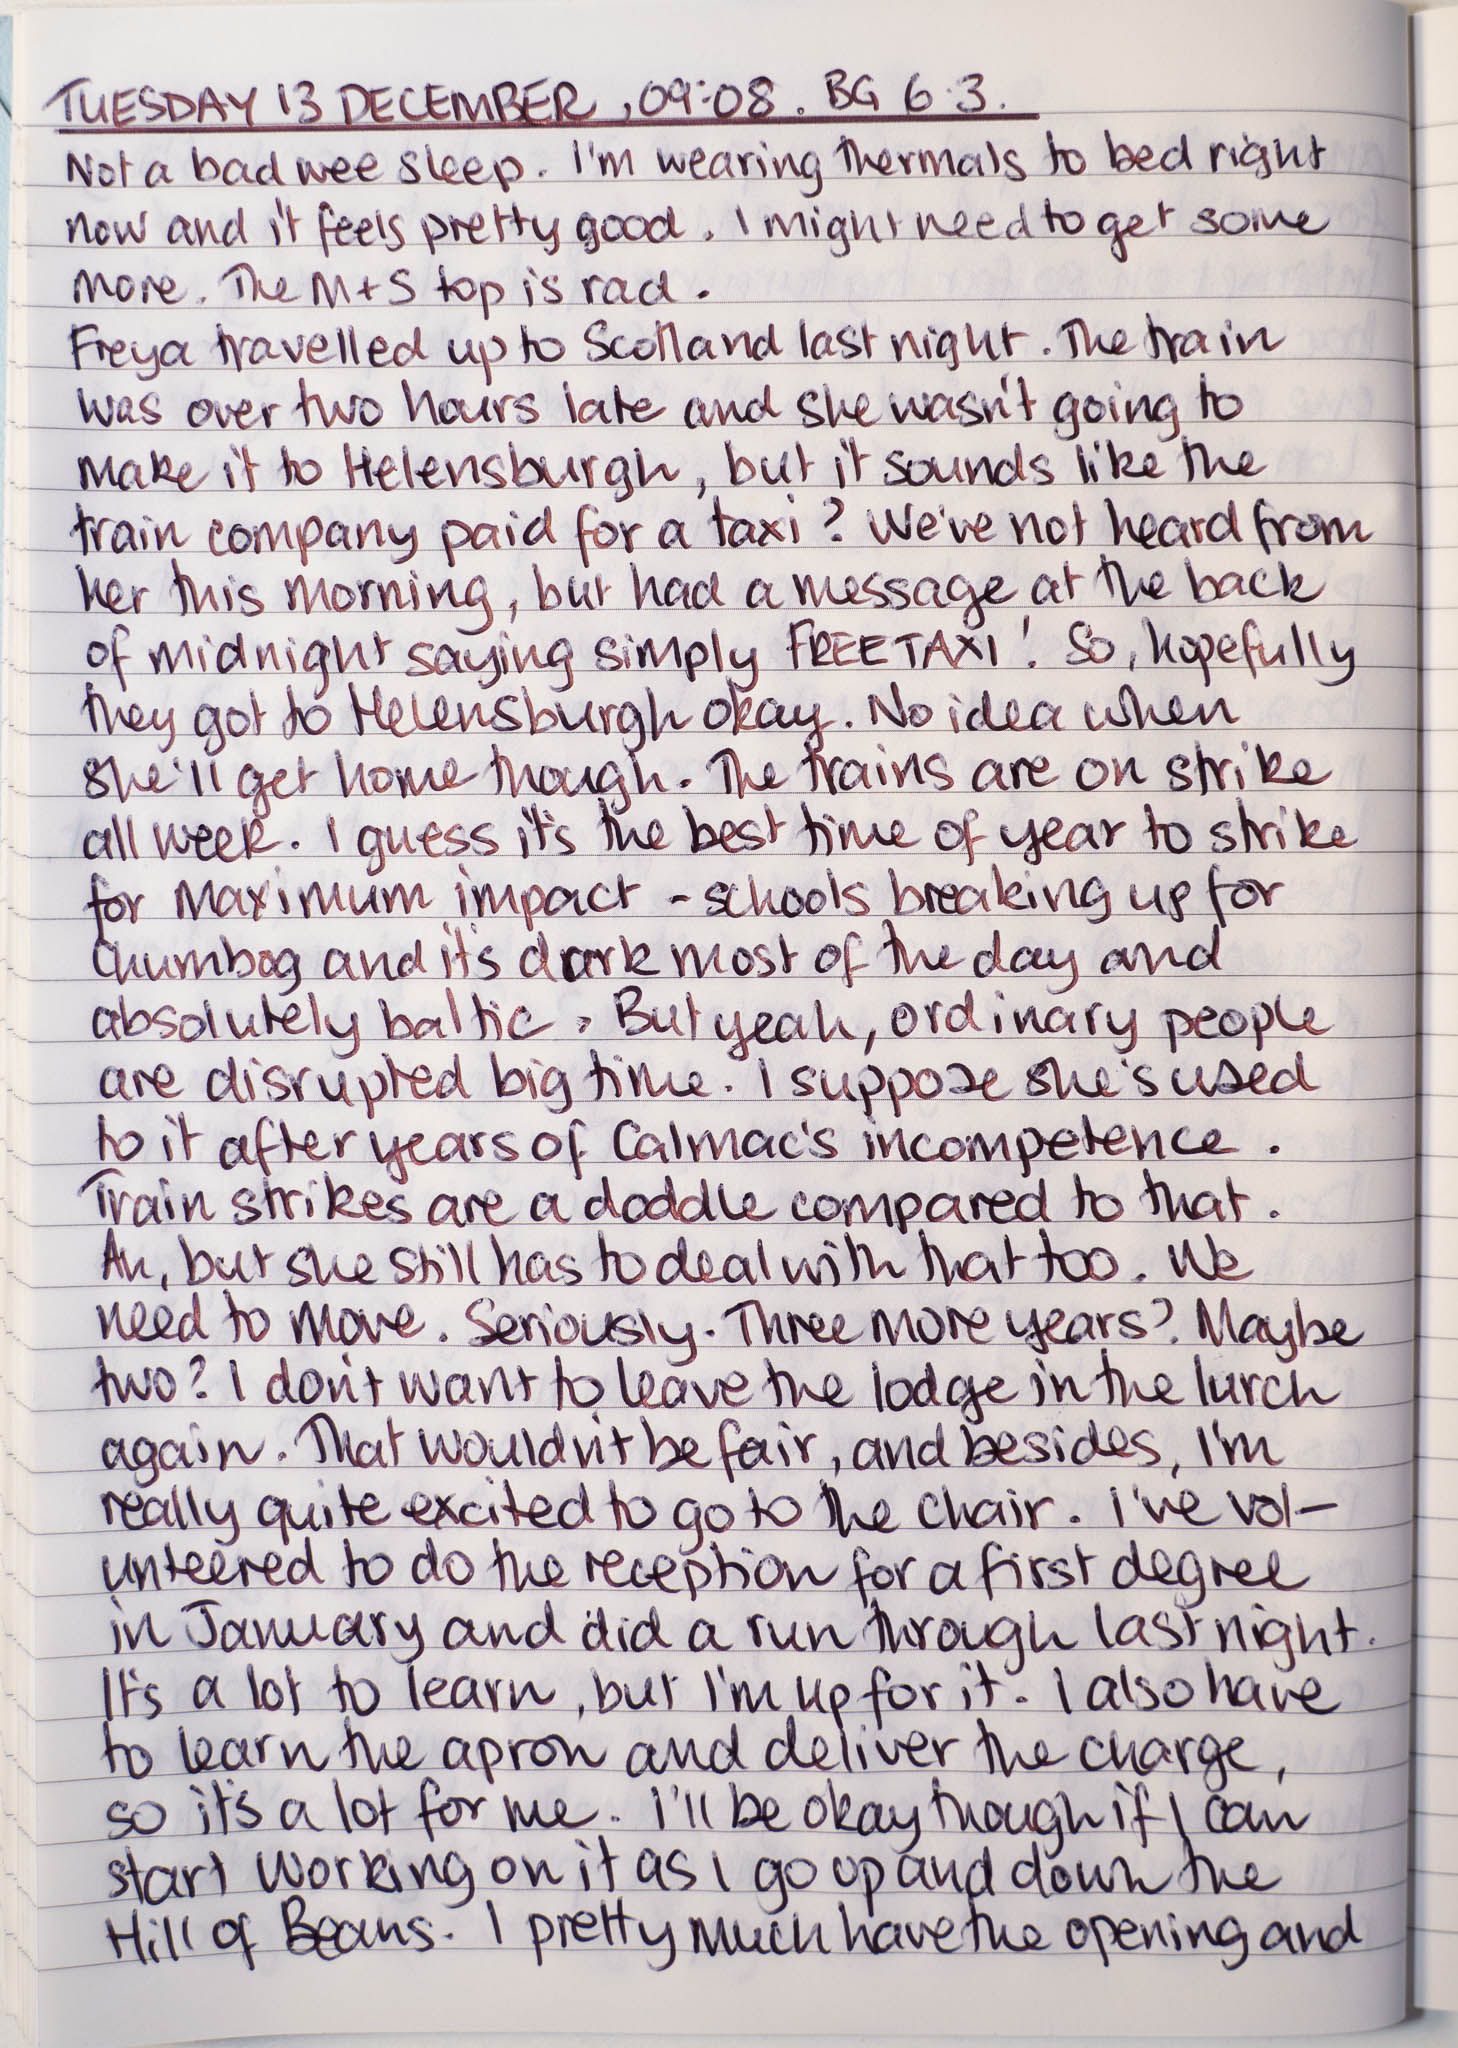 TUESDAY 13 DECEMBER, 09:08. BG 6.3.
Not a bad wee sleep. I'm wearing thermals to bed right
now and it feels pretty good. I might need to get some
more. The M+S top is rad.
Freya travelled up to Scotland last night. The train
was over two hours late and she wasn't going to
make it to Helensburgh, but it sounds like the
train company paid for a taxi? We've not heard from
her this morning, but had a message at the back
of midnight saying simply FREE TAXI! So, hopefully
they got to Helensburgh okay. No idea when
she'll get home though. The trains are on strike
all week. I guess it's the best time of year to strike
for maximum impact - schools breaking up for
Chumbog and it's dark most of the day and
absolutely baltic. But yeah, ordinary people
are disrupted big time. I suppose she's used
to it after years of Calmac's incompetence.
Train strikes are a doddle compared to that.
Ah, but she still has to deal with that too. We
need to move. Seriously. Three more years? Maybe
two? I don't want to leave the lodge in the lurch
again. That wouldn't be fair, and besides, I'm
really quite excited to go to the chair. I've vol-
unteered to do the reception for a first degree
in January and did a run through last night.
It's a lot to learn, but I'm up for it. I also have
to learn the apron and deliver the charge,
so it's a lot for me. I'll be okay though if I can
start working on it as I go up and down the
Hill of Beans. I pretty much have the opening and